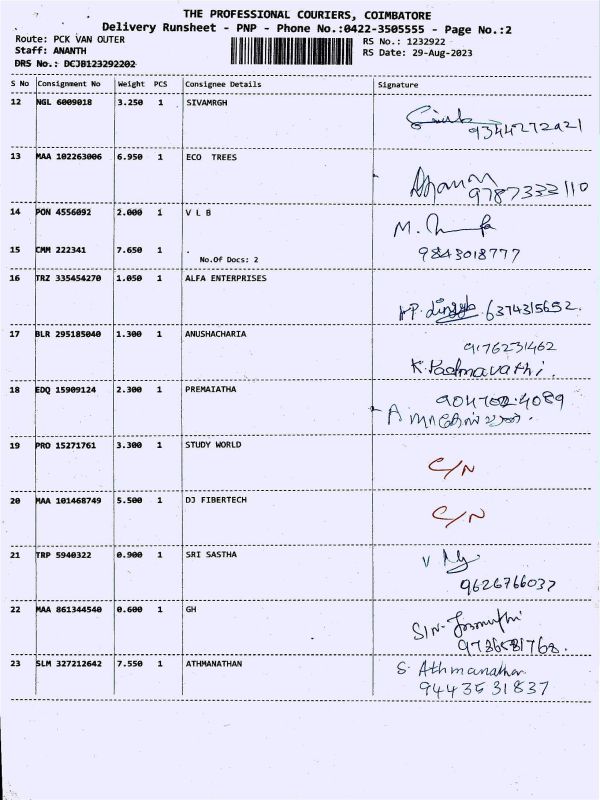 THE PROFESSIONAL COURIERS, COIMBATORE
Delivery Runsheet - PNP - Phone No.:0422-3505555 - Page No.:2
Route: PCK VAN OUTER
RS No.: 1232922
Staff: ANANTH
RS Date: 29-Aug-2023
DRS No.: DCJB123292202
S No Consignment No Weight PCS Consignee Details Signature
12 NGL 6009018 3.250 1 SIVAMRGH
9344272921
13 MAA 102263006 6.950 1 ECO TREES
9787333110
14 PON 4556092 2.000 1 V L B
M.
15 CMM 222341 7.650 1 .
No.Of Docs: 2
9843018777
16 TRZ 335454270 1.050 1 ALFA ENTERPRISES
6374315652.
17 BLR 295185040 1.300 1 ANUSHACHARIA
9176231462
K. Padmavathi.
18 EDQ 15909124 2.300 1 PREMAIATHA
19 PRO 15271761 3.300 1 STUDY WORLD
C/N
20 MAA 101468749 5.500 1 DJ FIBERTECH
C/N
21 TRP 5940322 0.900 1 SRI SASTHA
9626766037
22 MAA 861344540 0.600 1 GH
23 SLM 327212642 7.550 1 ATHMANATHAN
S. Athmanathan
9443531837